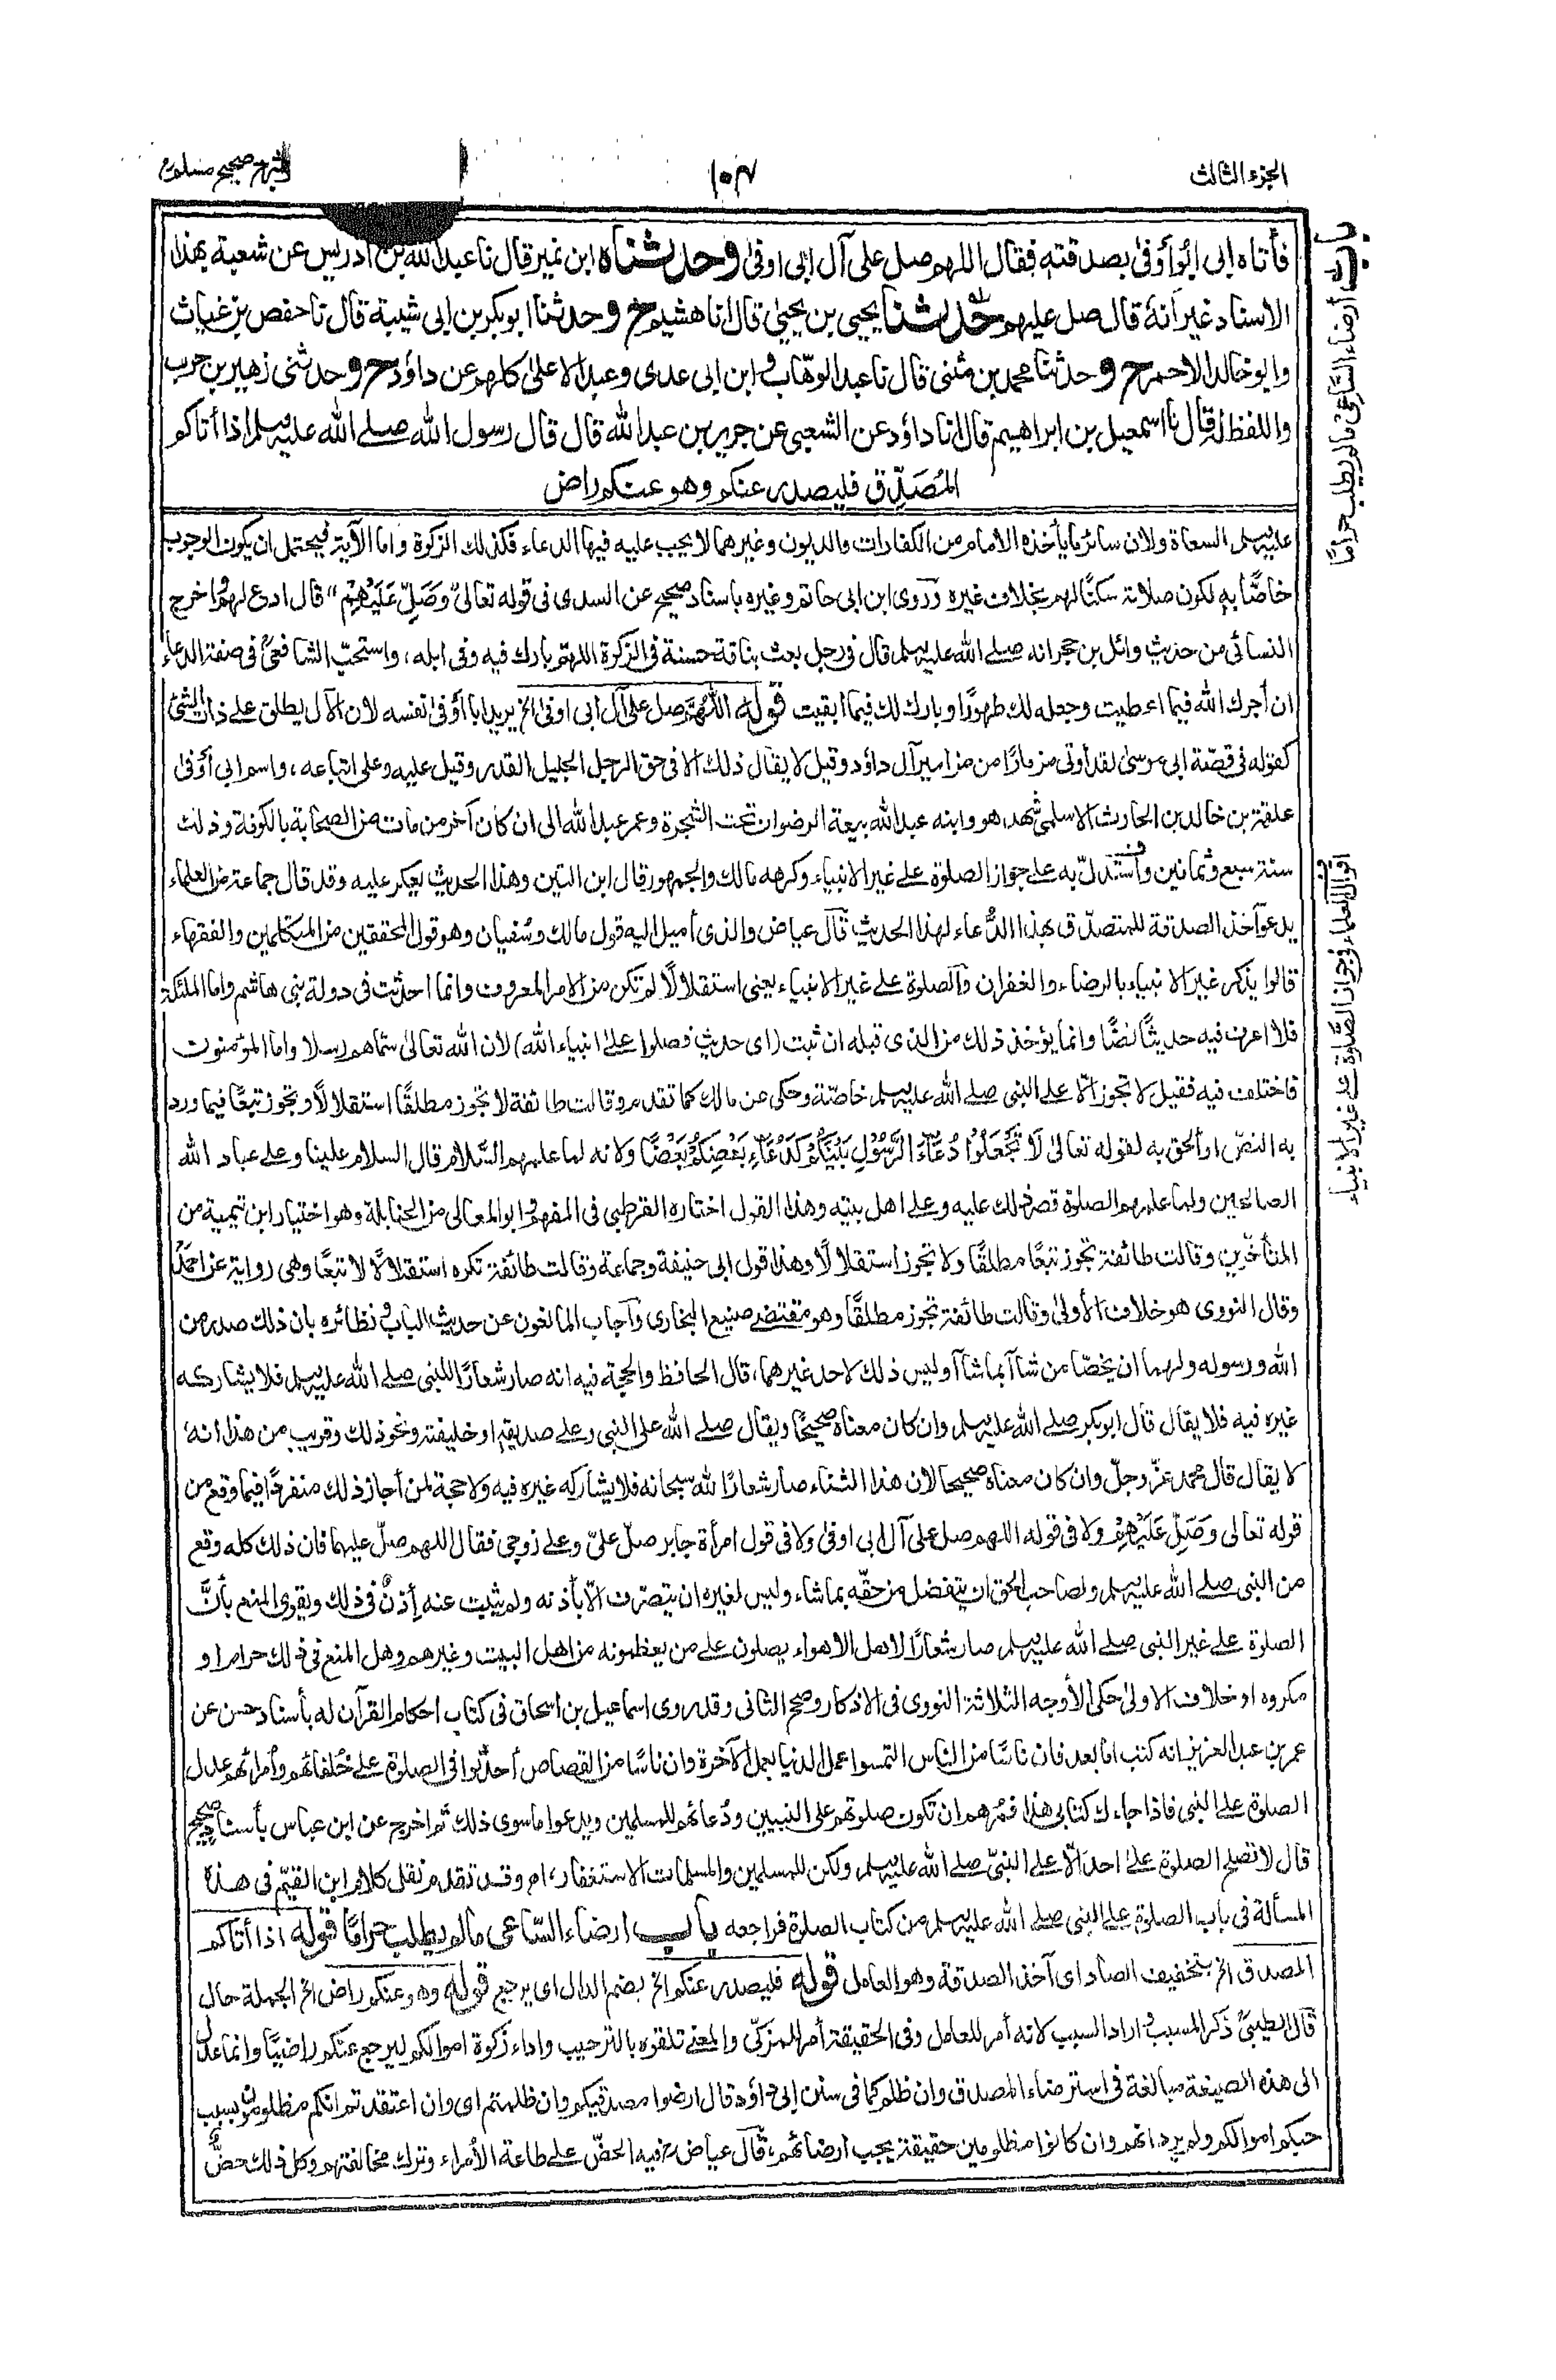 الجزء الثالث
١٠٣
شرح صحيح مسلم
فأتاه ابى ابو أوفىٰ بصدقته فقال اللهم صل على آل ابى اوفىٰ وحدثناه ابن نمير قال نا عبدالله بن ادريس عن شعبة بهذا
الاسناد غير أنه قال صل عليهم حدثنا يحيى بن يحيىٰ قال انا هشيم ح وحدثنا ابوبكر بن ابى شيبة قال نا حفص بن غياث
وابو خالد الاحمر ح وحدثنا محمد بن مثنى قال نا عبد الوهّاب و ابن ابى عدى وعبد الاعلىٰ كلهم عن داؤد ح وحدثنى زهير بن حرب
واللفظ له قال نا اسمعيل بن ابراهيم قال انا داؤد عن الشعبى عن جرير بن عبد الله قال قال رسول الله صلے الله عليه وسلم اذا أتاكم
المُصَدِّق فليصدر عنكم وهو عنكم راض
باب ارضاء السّاعى مالم يطلب حرامًا
عليه وسلم السعاة ولان سائر ما يأخذه الامام من الكفارات والديون وغيرهما لا يجب عليه فيها الدعاء فكذلك الزكوة واما الآية فيحتمل ان يكون الوجوب
خاصًّا به لكون صلاته سكنًا لهم بخلاف غيره وروى ابن ابى حاتم وغيره باسناد صحيح عن السدى فى قوله تعالىٰ وَصَلِّ عَلَيْهِمْ" قال ادع لهم واخرج
النسائى من حديث وائل بن حجر انه صلے الله عليه وسلم قال فى رجل بعث بناقة حسنة فى الزكوة اللهم بارك فيه وفى ابله، واستحبّ الشافعى فى صفة الدعاء
ان أجرك الله فيما اعطيت وجعله لك طهورًا وبارك لك فيما ابقيت قوله اللهم صل على آل ابى اوفىٰ الخ يريد ابا أوفىٰ نفسه لان الآل يطلق علے ذات الشئ
كقوله فى قصّة ابى موسىٰ لقد أوتى مزمارًا من مزامير آل داؤد وقيل لا يقال ذلك الا فى حق الرجل الجليل القدر وقيل عليه وعلى اتباعه، واسم ابى أوفىٰ
علقمة بن خالد بن الحارث الاسلمى شهد هو وابنه عبد الله بيعة الرضوان تحت الشجرة وعمر عبد الله الى ان كان آخر من مات من الصحابة بالكوفة وذلك
سنة سبع وثمانين واستدلّ به علے جواز الصلوة علے غير الانبياء وكرهه مالك والجمهور قال ابن التين وهذا الحديث يعكر عليه وقد قال جماعة من العلماء
يدعو آخذ الصدقة للمتصدّق بهذا الدُّعاء لهذا الحديث قال عياض والذى أميل اليه قول مالك وسُفيان وهو قول المحققين من المتكلمين والفقهاء
قالوا يذكر غير الانبياء بالرضاء والغفران والصلوة علے غير الانبياء يعنى استقلالًا لم تكن من الامر المعروف وانما احدثت فى دولة بنى هاشم واما الملئكة
فلا اعرف فيه حديثًا نصًّا وانما يؤخذ ذلك من الذى قبله ان ثبت (اى حديث وصلوا علىٰ انبياء الله) لان الله تعالىٰ سمّاهم رسلا واما المؤمنون
فاختلف فيه فقيل لا تجوز الّا على النبى صلے الله عليه وسلم خاصّة وحكى عن مالك كما تقدم وقالت طائفة لا تجوز مطلقًا استقلالًا وتجوز تبعًا فيما ورد
به النصّ او ألحق به لقوله تعالىٰ لَا تَجْعَلُوْا دُعَآءَ الرَّسُوْلِ بَيْنَكُمْ كَدُعَآءِ بَعْضِكُمْ بَعْضًا ولانه لما علمهم السّلام قال السلام علينا وعلے عباد الله
الصالحين ولما علمهم الصلوة قصر ذلك عليه وعلے اهل بيته وهذا القول اختاره القرطبى فى المفهم وابوالمعالى من الحنابلة وهو اختيار ابن تيمية من
المتأخّرين وقالت طائفة تجوز تبعًا مطلقًا ولا تجوز استقلالًا وهذا قول ابى حنيفة وجماعة وقالت طائفة تكره استقلالًا لا تبعًا وهى رواية عن احمدؒ
وقال النووى هو خلاف الأولىٰ وقالت طائفة تجوز مطلقًا وهو مقتضے صنيع البخارى واجاب المانعون عن حديث الباب و نظائره بان ذلك صدر من
الله ورسوله ولهما ان يخصّا من شاآ بما شاآ وليس ذلك لاحد غيرهما، قال الحافظ والحجة فيه انه صار شعارًا للنبى صلے الله عليه وسلم فلا يشاركه
غيره فيه فلا يقال قال ابوبكر صلے الله عليه وسلم وان كان معناه صحيحًا ويقال صلے الله على النبى وعلے صديقه او خليفته ونحو ذلك وقريب من هذا انه
لا يقال قال محمد عزّ وجلّ وان كان معناه صحيحا لان هذا الثناء صار شعارًا لله سبحانه فلا يشاركه غيره فيه ولا حجة لمن أجاز ذلك منفردًا فيما وقع من
قوله تعالى وَصَلِّ عَلَيْهِمْ ولا فى قوله اللهم صل على آل ابى اوفىٰ ولا فى قول امرأة جابر صلّ علىّ وعلے زوجى فقال اللهم صلّ عليهما فان ذلك كله وقع
من النبى صلے الله عليه وسلم ولصاحب الحق ان يتفضل من حقّه بما شاء وليس لغيره ان يتصرّف الّا باذنه ولم يثبت عنه إذنٌ فى ذلك ويقوى المنع بأنَّ
الصلوة علے غير النبى صلے الله عليه وسلم صار شعارًا لاهل الاهواء يصلون علے من يعظمونه من اهل البيت وغيرهم وهل المنع فى ذلك حرام او
مكروه او خلاف الاولىٰ حكى الأوجه الثلاثة النووى فى الاذكار وصحح الثانى وقد روى اسماعيل بن اسحاق فى كتاب احكام القرآن له بأسناد حسن عن
عمر بن عبد العزيز انه كتب اما بعد فان ناسًا من الناس التمسوا عمل الدنيا بعمل الآخرة وان ناسًا من القصاص أحدثوا فى الصلوة علے خُلفائهم وأمرائهم عدل
الصلوة على النبى فاذا جاءك كتابى هذا فمُرهم ان تكون صلوتهم على النبيين ودُعائهم للمسلمين ويدعوا ما سوى ذلك ثم اخرج عن ابن عباس بأسناد صحيح
قال لا تصلح الصلوة علىٰ احد الّا علے النبىّ صلے الله عليه وسلم ولكن للمسلمين والمسلمات الاستغفار، اھ وقد تقدم نقل كلام ابن القيّم فى هذه
المسألة فى باب الصلوة علے النبى صلے الله عليه وسلم من كتاب الصلوة فراجعه باب ارضاء السّاعى مالم يطلب حرامًا قوله اذا أتاكم
المصدق الخ بتخفيف الصاد اى آخذ الصدقة وهو العامل قوله فليصدر عنكم الخ بضم الدال اى يرجع قوله وهو عنكم راض الخ الجملة حال
قال الطيبىؒ ذكر المسبب و اراد السبب لانه أمر للعامل وفى الحقيقة أمر للمزكّى والمعنے تلقوه بالترحيب واداء زكوة اموالكم ليرجع عنكم راضيًا وانما عدل
الى هذه الصيغة مبالغة فى استرضاء المصدق وان ظلم كما فى سنن ابى داؤد قال ارضوا مصدقيكم وان ظلمتم اى وان اعتقدتم انكم مظلومون بسبب
حبكم اموالكم ولم يرد انهم وان كانوا مظلومين حقيقة يجب ارضائهم، قال عياض رح فيه الحضّ علے طاعة الأمراء وترك مخالفتهم وكل ذلك حضٌّ
اقوال العلماء فى جواز الصّلوة علے غير الانبياء